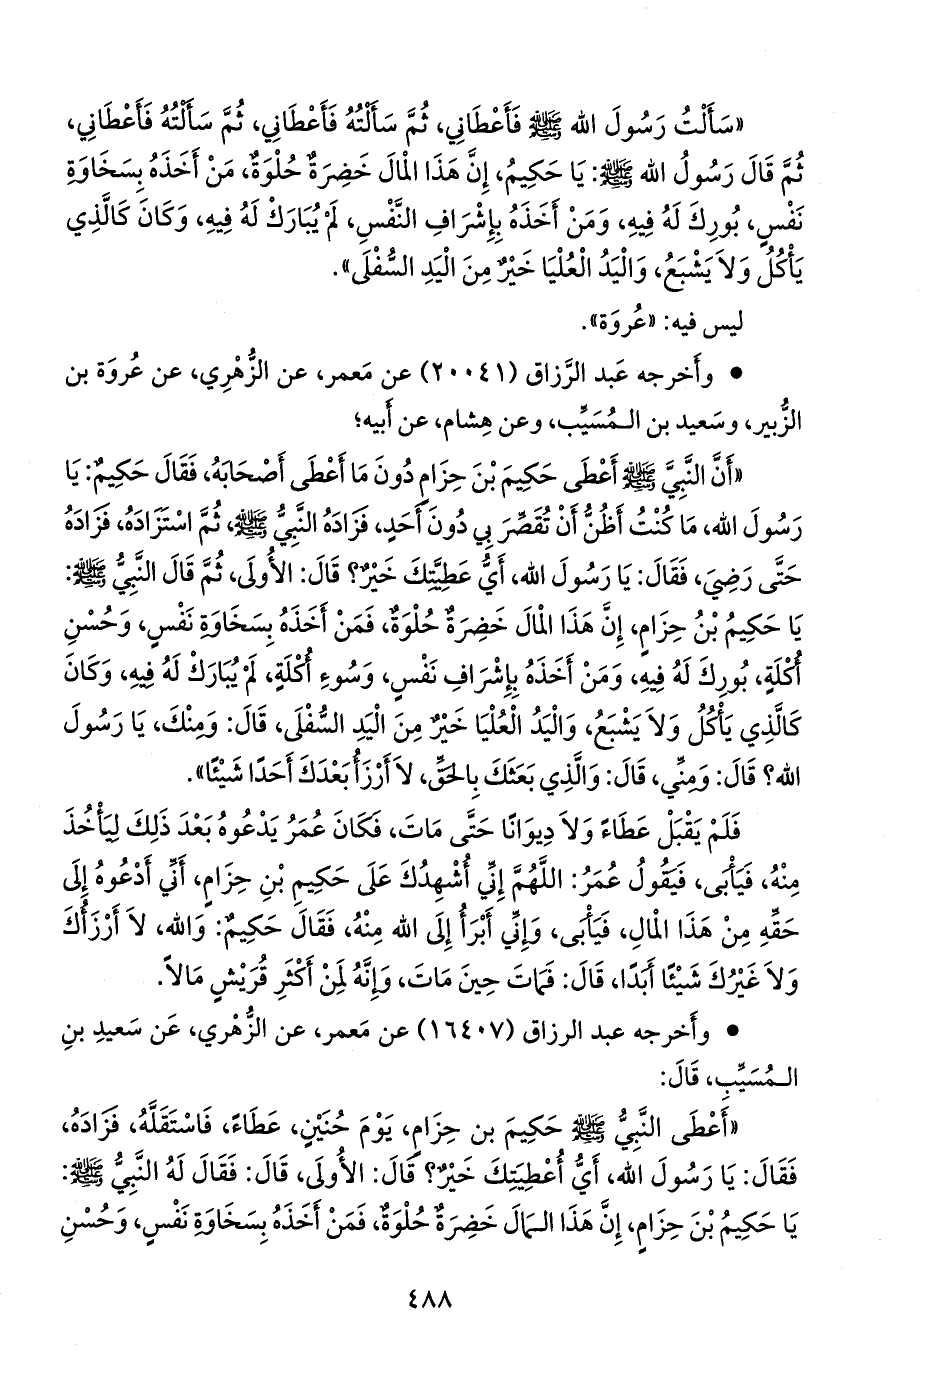 «سَأَلْتُ رَسُولَ الله ﷺ فَأَعْطَانِي، ثُمَّ سَأَلْتُهُ فَأَعْطَانِي، ثُمَّ سَأَلْتُهُ فَأَعْطَانِي،
ثُمَّ قَالَ رَسُولُ الله ﷺ: يَا حَكِيمُ، إِنَّ هَذَا الْمَالَ خَضِرَةٌ حُلْوَةٌ، مَنْ أَخَذَهُ بِسَخَاوَةِ
نَفْسٍ، بُورِكَ لَهُ فِيهِ، وَمَنْ أَخَذَهُ بِإِشْرَافِ النَّفْسِ، لَمْ يُبَارَكْ لَهُ فِيهِ، وَكَانَ كَالَّذِي
يَأْكُلُ وَلاَ يَشْبَعُ، وَالْيَدُ الْعُلْيَا خَيْرٌ مِنَ الْيَدِ السُّفْلَى».
ليس فيه: «عُروَة».
• وأَخرجه عَبد الرَّزاق (٢٠٠٤١) عن مَعمر، عن الزُّهْرِي، عن عُروَة بن
الزُّبير، وسَعيد بن الـمُسَيِّب، وعن هِشام، عن أَبيه؛
«أَنَّ النَّبِيَّ ﷺ أَعْطَى حَكِيمَ بْنَ حِزَامٍ دُونَ مَا أَعْطَى أَصْحَابَهُ، فَقَالَ حَكِيمٌ: يَا
رَسُولَ الله، مَا كُنْتُ أَظُنُّ أَنْ تُقَصِّرَ بِي دُونَ أَحَدٍ، فَزَادَهُ النَّبِيُّ ﷺ، ثُمَّ اسْتَزَادَهُ، فَزَادَهُ
حَتَّى رَضِيَ، فَقَالَ: يَا رَسُولَ الله، أَيُّ عَطِيَّتِكَ خَيْرٌ؟ قَالَ: الأُولَى، ثُمَّ قَالَ النَّبِيُّ ﷺ:
يَا حَكِيمُ بْنُ حِزَامٍ، إِنَّ هَذَا الْمَالَ خَضِرَةٌ حُلْوَةٌ، فَمَنْ أَخَذَهُ بِسَخَاوَةِ نَفْسٍ، وَحُسْنِ
أُكْلَةٍ، بُورِكَ لَهُ فِيهِ، وَمَنْ أَخَذَهُ بِإِشْرَافِ نَفْسٍ، وَسُوءِ أُكْلَةٍ، لَمْ يُبَارَكْ لَهُ فِيهِ، وَكَانَ
كَالَّذِي يَأْكُلُ وَلاَ يَشْبَعُ، وَالْيَدُ الْعُلْيَا خَيْرٌ مِنَ الْيَدِ السُّفْلَى، قَالَ: وَمِنْكَ، يَا رَسُولَ
الله؟ قَالَ: وَمِنِّي، قَالَ: وَالَّذِي بَعَثَكَ بِالحَقِّ، لاَ أَرْزَأُ بَعْدَكَ أَحَدًا شَيْئًا».
فَلَمْ يَقْبَلْ عَطَاءً وَلاَ دِيوَانًا حَتَّى مَاتَ، فَكَانَ عُمَرُ يَدْعُوهُ بَعْدَ ذَلِكَ لِيَأْخُذَ
مِنْهُ، فَيَأْبَى، فَيَقُولُ عُمَرُ: اللَّهُمَّ إِنِّي أُشْهِدُكَ عَلَى حَكِيمِ بْنِ حِزَامٍ، أَنِّي أَدْعُوهُ إِلَى
حَقِّهِ مِنْ هَذَا الْمَالِ، فَيَأْبَى، وَإِنِّي أَبْرَأُ إِلَى الله مِنْهُ، فَقَالَ حَكِيمٌ: وَالله، لاَ أَرْزَأُكَ
وَلاَ غَيْرَكَ شَيْئًا أَبَدًا، قَالَ: فَمَاتَ حِينَ مَاتَ، وَإِنَّهُ لَمِنْ أَكْثَرِ قُرَيْشٍ مَالاً.
• وأَخرجه عبد الرزاق (١٦٤٠٧) عن مَعمر، عن الزُّهْري، عَن سَعيدِ بنِ
الـمُسَيِّبِ، قَالَ:
«أَعْطَى النَّبِيُّ ﷺ حَكِيمَ بن حِزَامٍ، يَوْمَ حُنَيْنٍ، عَطَاءً، فَاسْتَقَلَّهُ، فَزَادَهُ،
فَقَالَ: يَا رَسُولَ الله، أَيُّ أُعْطِيَتِكَ خَيْرٌ؟ قَالَ: الأُولَى، قَالَ: فَقَالَ لَهُ النَّبِيُّ ﷺ:
يَا حَكِيمُ بْنَ حِزَامٍ، إِنَّ هَذَا الـمَالَ خَضِرَةٌ حُلْوَةٌ، فَمَنْ أَخَذَهُ بِسَخَاوَةِ نَفْسٍ، وَحُسْنِ
٤٨٨